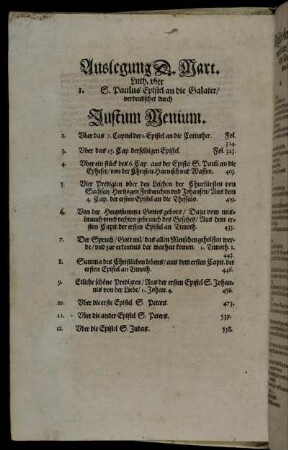 Auslegung D. Mart.
Luth. vber
1. S. Paulus Epistel an die Galater/
verdeutschet durch
Justum Menium.
2. Vber das 7. Capitel der 1. Epistel an die Corinther. Fol.
324.
3. Vber das 15. Cap. derselbigen Epistel. Fol. 347.
4. Vber ein stück des 6. Cap. aus der Epistel S. Pauli an die
Epheser/ von der Christen Harnisch vnd Waffen. 403.
5. Vier Predigten vber den Leichen der Churfürsten von
Sachsen/ Hertzogen Friderichen vnd Johansen/ Aus dem
4. Cap. der ersten Epistel an die Thessalo.
6. Von der Heuptsumma Gottes gebots/ Dazu vom mis-
brauch vnd rechten gebrauch des Gesetzes/ Aus dem er-
sten Capit. der ersten Epistel an Timoth. 433.
7. Der Spruch/ Gott wil/ das allen Menschen geholffen wer-
de/ vnd zur erkentnis der warheit komen. 1. Timoth. 2.
443.
8. Summa des Christlichen lebens/ aus dem ersten Capit. der
ersten Epistel an Timoth. 446.
9. Etliche schöne Predigten/ Aus der ersten Epistel S. Johan-
nis von der Liebe/ 1. Johan. 4. 456.
10. Vber die erste Epistel S. Peters. 473.
11. Vber die ander Epistel S. Peters. 539.
12. Vber die Epistel S. Judas. 558.